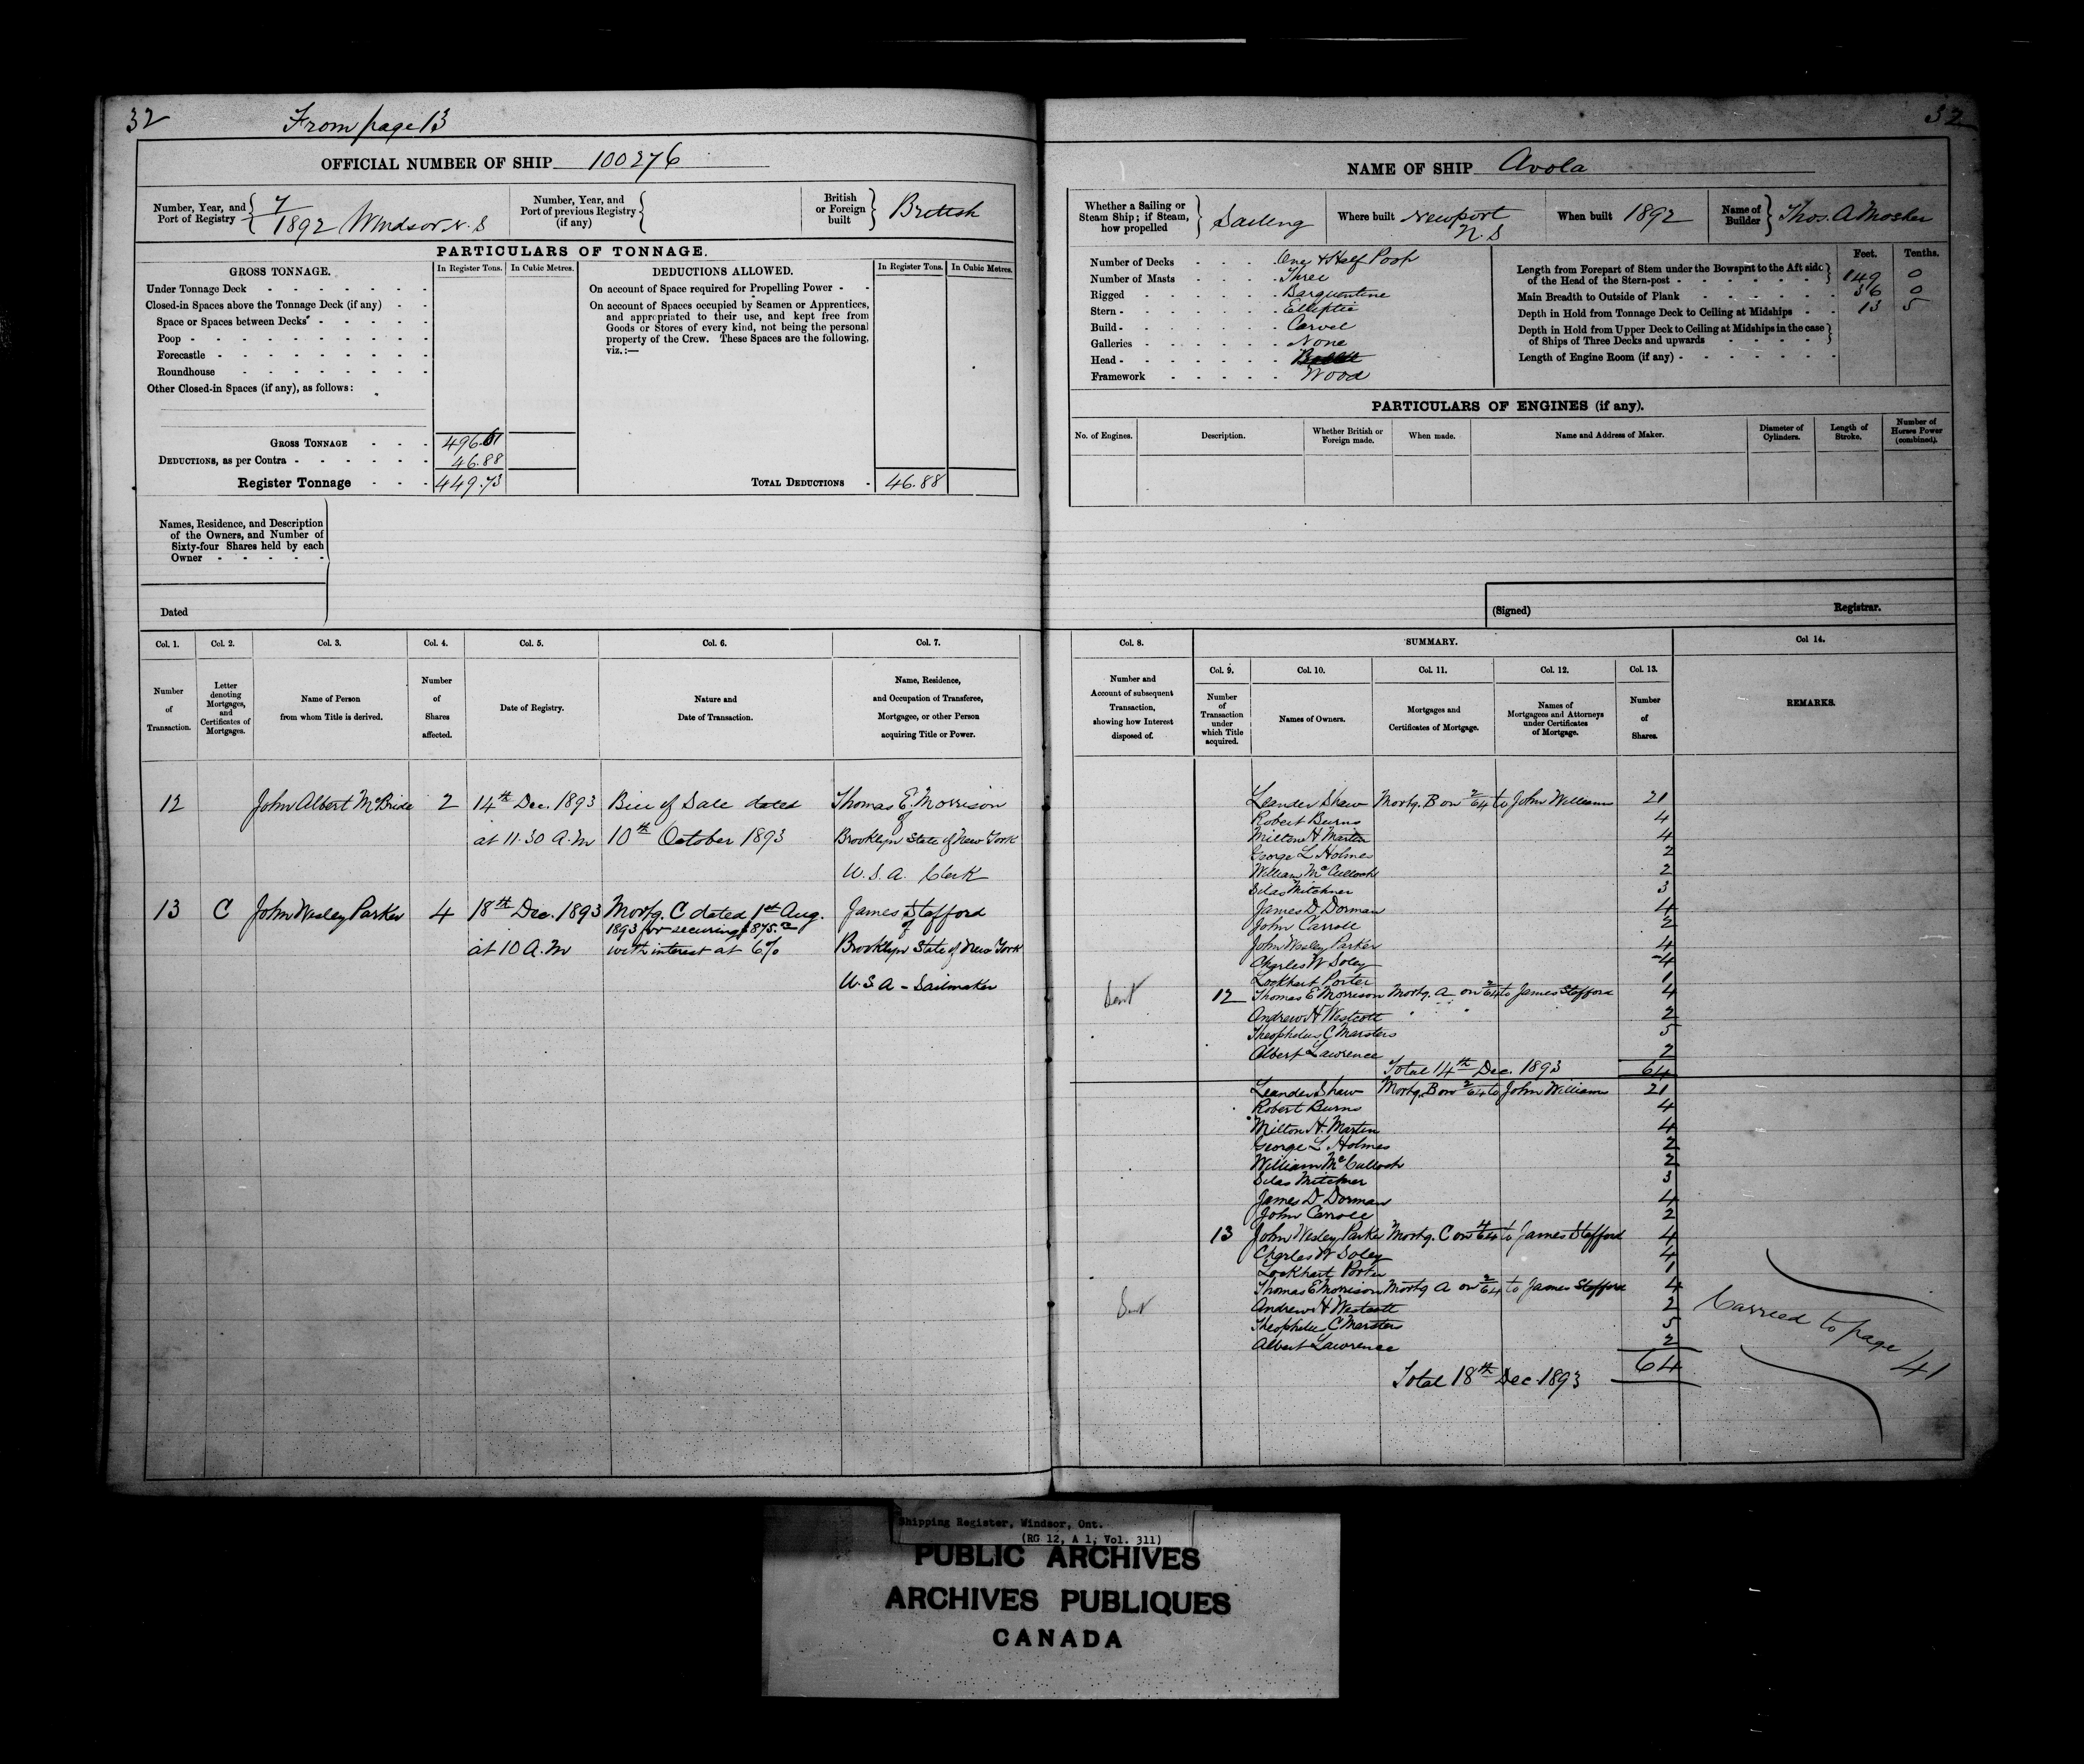 32
From page 13
OFFICIAL NUMBER OF SHIP 100276
Number, Year, and Port of Registry { 7/1892 Windsor N.S
Number, Year, and Port of previous Registry (if any) {
British or Foreign built } British
PARTICULARS OF TONNAGE.
GROSS TONNAGE. In Register Tons. In Cubic Metres.
Under Tonnage Deck
Closed-in Spaces above the Tonnage Deck (if any)
Space or Spaces between Decks
Poop
Forecastle
Roundhouse
Other Closed-in Spaces (if any), as follows:
GROSS TONNAGE 496.61
DEDUCTIONS, as per Contra 46.88
Register Tonnage 449.73
DEDUCTIONS ALLOWED. In Register Tons. In Cubic Metres.
On account of Space required for Propelling Power
On account of Spaces occupied by Seamen or Apprentices,
and appropriated to their use, and kept free from
Goods or Stores of every kind, not being the personal
property of the Crew. These Spaces are the following,
viz.:—
TOTAL DEDUCTIONS 46.88
Names, Residence, and Description
of the Owners, and Number of
Sixty-four Shares held by each
Owner
Dated
Col. 1. Col. 2. Col. 3. Col. 4. Col. 5. Col. 6. Col. 7.
Number of Transaction.
Letter denoting Mortgages, and Certificates of Mortgages.
Name of Person from whom Title is derived.
Number of Shares affected.
Date of Registry.
Nature and Date of Transaction.
Name, Residence, and Occupation of Transferee, Mortgagee, or other Person acquiring Title or Power.
12 John Albert McBride 2 14th Dec. 1893 Bill of Sale dated Thomas E. Morrison
of
at 11.30 A.M 10th October 1893 Brooklyn State of New York
U.S.A. Clerk
13 C John Wesley Parker 4 18th Dec. 1893 Mortg. C dated 1st Aug. James Stafford
1893 for securing $875.00 of
at 10 A.M with interest at 6% Brooklyn State of New York
U.S.A - Sailmaker
32
NAME OF SHIP Avola
Whether a Sailing or Steam Ship; if Steam, how propelled } Sailing
Where built Newport N.S
When built 1892
Name of Builder } Thos. A Mosher
Number of Decks One & Half Poop
Number of Masts Three
Rigged Barquentine
Stern Elliptic
Build Carvel
Galleries None
Head
Framework Wood
Feet. Tenths.
Length from Forepart of Stem under the Bowsprit to the Aft side
of the Head of the Stern-post 149 0
Main Breadth to Outside of Plank 36 0
Depth in Hold from Tonnage Deck to Ceiling at Midships 13 5
Depth in Hold from Upper Deck to Ceiling at Midships in the case
of Ships of Three Decks and upwards
Length of Engine Room (if any)
PARTICULARS OF ENGINES (if any).
No. of Engines. Description. Whether British or Foreign made. When made. Name and Address of Maker. Diameter of Cylinders. Length of Stroke. Number of Horses Power (combined).
(Signed) Registrar.
Col. 8. SUMMARY. Col 14.
Col. 9. Col. 10. Col. 11. Col. 12. Col. 13.
Number and Account of subsequent Transaction, showing how Interest disposed of.
Number of Transaction under which Title acquired.
Names of Owners.
Mortgages and Certificates of Mortgage.
Names of Mortgagees and Attorneys under Certificates of Mortgage.
Number of Shares.
REMARKS.
Leander Shaw Mortg. B on 2/64 to John Williams 21
Robert Burns 4
Milton H Martin 4
George L Holmes 2
William McCulloch 2
Silas Mitchner 3
James D Dorman 4
John Carroll 2
John Wesley Parker 4
Charles W Soley 4
Lockhart Porter 1
Sent 12 Thomas E Morrison Mortg. A on 2/64 to James Stafford 4
Andrew H Westcott 2
Theophilus C Marsters 5
Albert Lawrence 2
Total 14th Dec. 1893 64
Leander Shaw Mortg. B on 2/64 to John Williams 21
Robert Burns 4
Milton H. Martin 4
George L. Holmes 2
William McCulloch 2
Silas Mitchner 3
James D Dorman 4
John Carroll 2
13 John Wesley Parker Mortg. C on 4/64 to James Stafford 4
Charles W Soley 4
Lockhart Porter 1
Thomas E Morrison Mortg A on 2/64 to James Stafford 4
Sent Andrew H Westcott 2
Theophilus C Marsters 5
Albert Lawrence 2
Total 18th Dec 1893 64
Carried to page 41
Shipping Register, Windsor, Ont.
(RG 12, A 1, Vol. 311)
PUBLIC ARCHIVES
ARCHIVES PUBLIQUES
CANADA